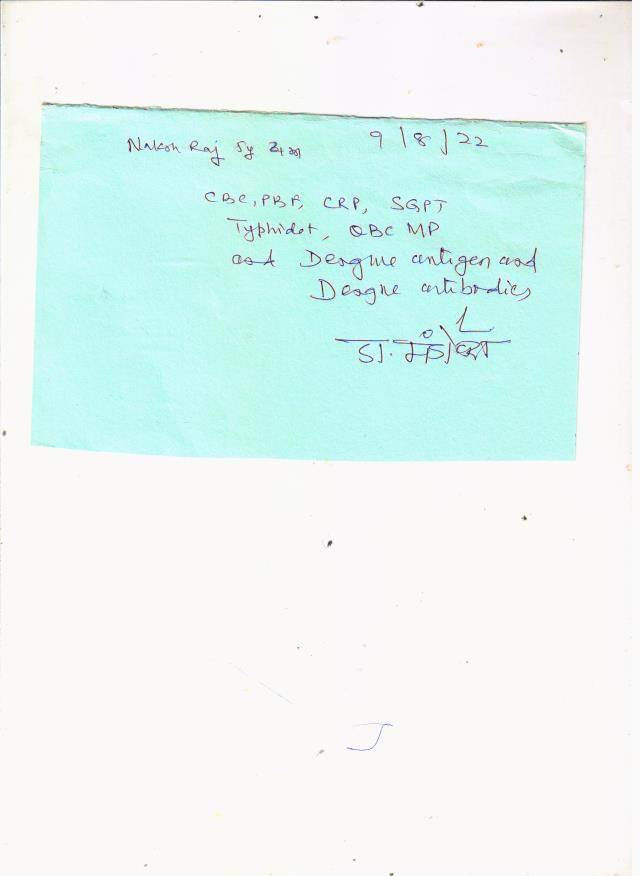 Naksh Raj 5y
9/8/22
CBC, PBF, CRP, SGPT
Typhidot, QBC MP
and Dengue antigen and
Dengue antibodies
डा.